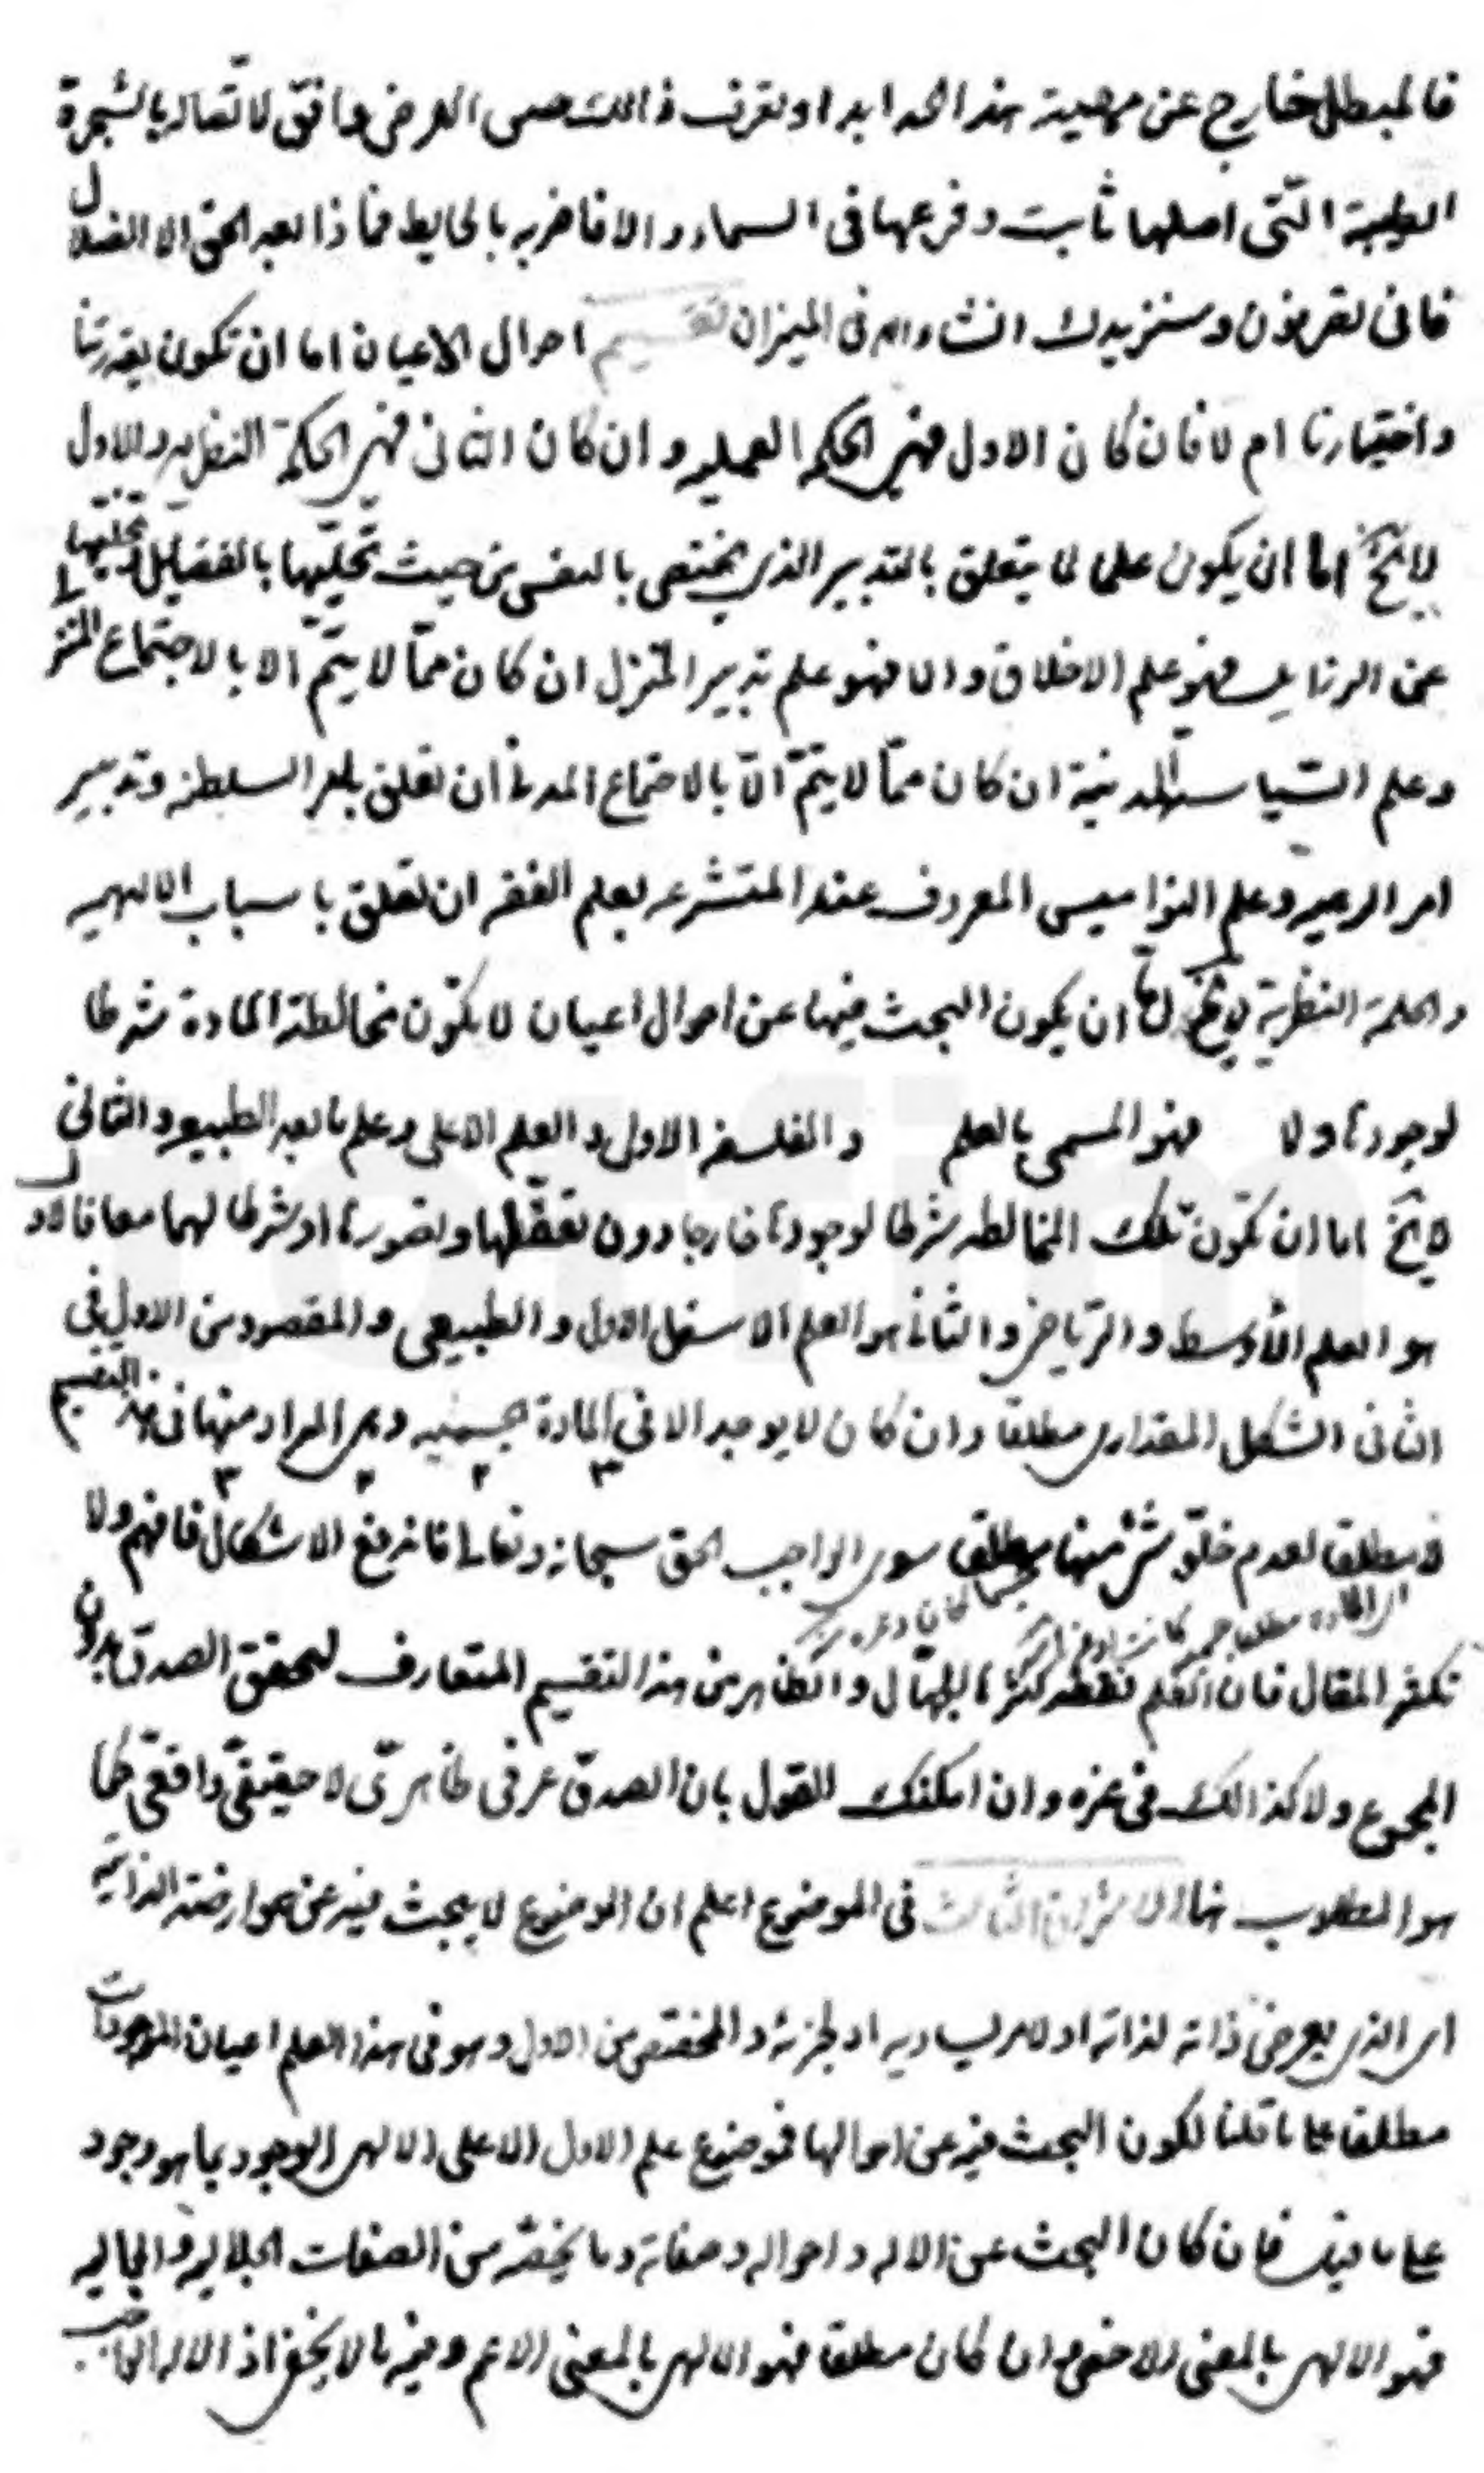 فالمبطل خارج عن مهية هذا الحد ابدا و تعرف ذالك حصى الارض وافق لاتصاله بالشجرة
الطيبة التى اصلها ثابت و فرعها فى السماء و الا فاضربه بالحايط فماذا بعد الحق الا الضلال
فانى تصرفون و سنزيدك انشاء الله فى الميزان تقسيم احوال الاعيان اما ان تكون بقدرتنا
و اختيارنا ام لا فان كان الاول فهى الحكمة العمليه و ان كان الثانى فهى الحكمة النظريه و الاول
لا يخ اما ان يكون علما لما يتعلق بالتدبير الذى يختص بالنفس من حيث تحليها بالفضايل و تخليها
عن الرذايل فهو علم الاخلاق و الا فهو علم تدبير المنزل ان كان مما لا يتم الا بالاجتماع المنزلى
و علم السياسة المدنية ان كان مما لا يتم الا بالاجتماع المدنى ان تعلق بامر السلطنه و تدبير
امر الرعيه و علم النواميس المعروف عند المتشرعه بعلم الفقه ان تعلق باسباب الالهيه
و الحكمة النظرية لا يخ اما ان يكون البحث فيها عن احوال اعيان لا تكون مخالطة المادة شرطا
لوجودها و لا فهو المسمى بالعلم و الفلسفه الاولى و العلم الاعلى و علم ما بعد الطبيعه و الثانى
لا يخ اما ان تكون تلك المخالطه شرطا لوجودها خارجا دون تعقلها و تصورها او شرطا لهما معا فالاول
هو العلم الاوسط و الرياضى و الثانى هو العلم الاسفل الاول و الطبيعى و المقصود من الاول فى
الثانى الشكل المقدارى مطلقا و ان كان لا يوجد الا فى المادة جسميه و هى المراد منها فى هذا التقسيم
لا مطلقا لعدم خلو شىء منها مطلقا سوى الواجب الحق سبحانه و تعالى فانه رفع الاشكال فافهم و لا
تكفر المقال فان العلم نقطة كثرها الجهال و الظاهر من هذا التقسيم المتعارف لتحقق الصدق بدون
المجموع و لا كذالك فى غيره و ان امكنك القول بان الصدق عرفى ظاهرى لا حقيقى واقعى كما
هو المطلوب هنا الاشراق الثالث فى الموضوع اعلم ان الموضوع لا يبحث فيه عن عوارضه الذاتية
اى الذى يعرض ذاته لذاته او لامر يساويه او لجزئه و المختص من الاول و هو فى هذا العلم اعيان الموجودات
مطلقا على ما قلنا لكون البحث فيه عن احوالها فموضوع علم الاول الاعلى الالهى الوجود بما هو وجود
على ما قيل فان كان البحث عن الاله و احواله و صفاته و ما يخصه من الصفات الجلاليه و الجماليه
فهو الالهى بالمعنى الاخص و ان كان مطلقا فهو الالهى بالمعنى الاعم و فيه ما لا يخفى اذ الاله الواجب